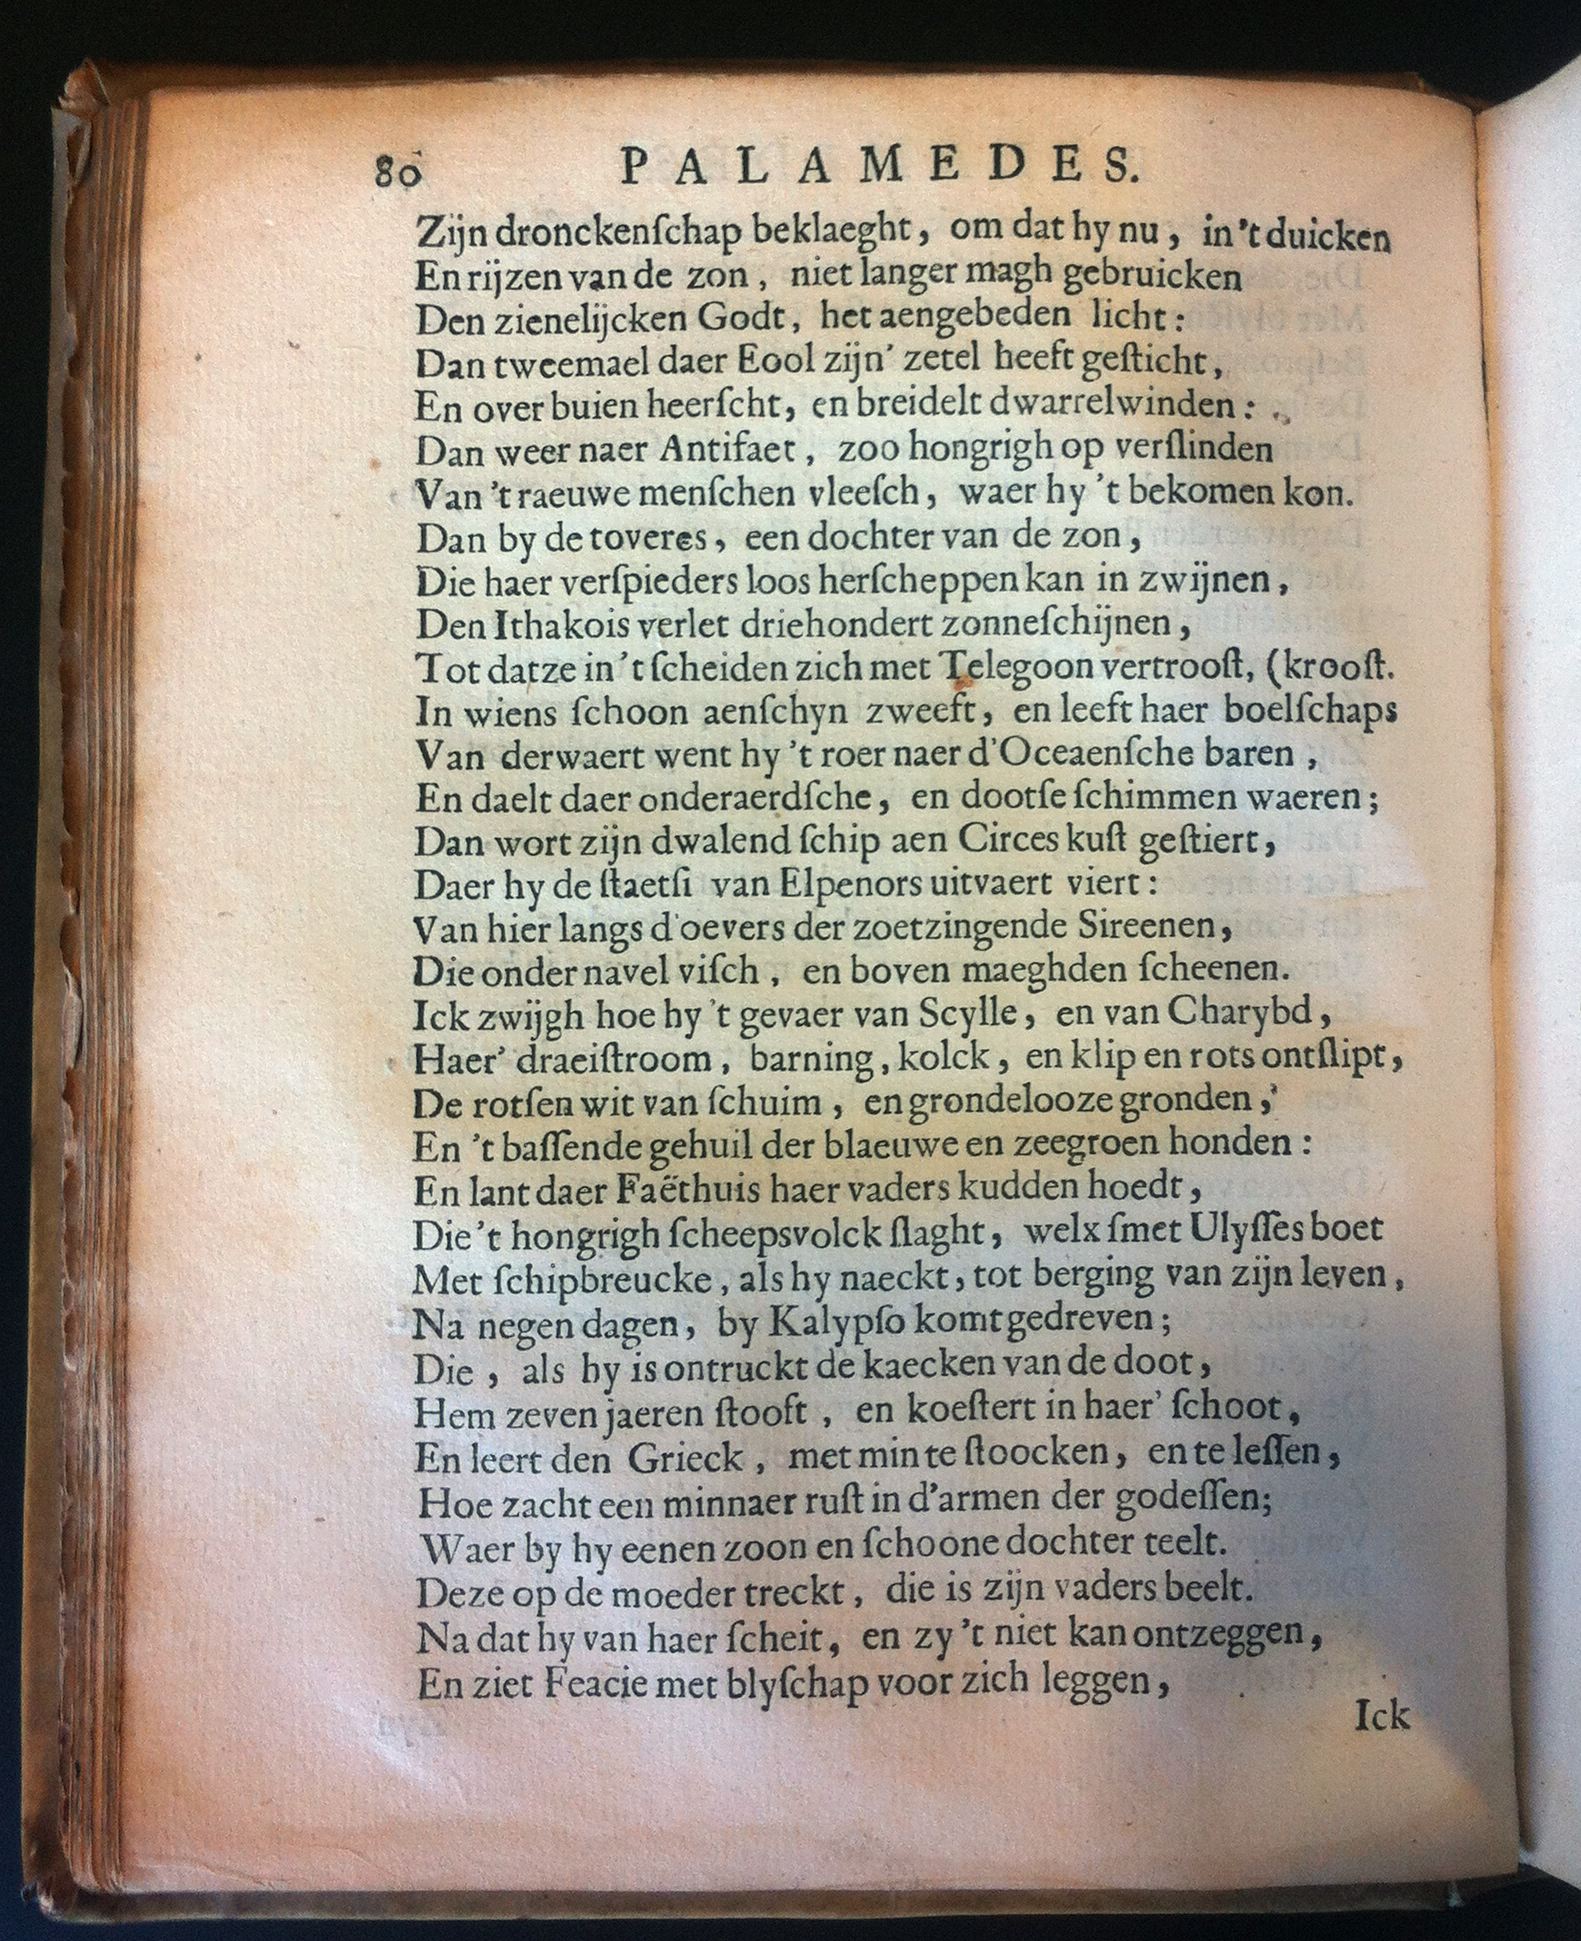 80 PALAMEDES.
Zijn dronckenſchap beklaeght, om dat hy nu, in 't duicken
En rijzen van de zon, niet langer magh gebruicken
Den zienelijcken Godt, het aengebeden licht:
Dan tweemael daer Eool zijn' zetel heeft geſticht,
En over buien heerſcht, en breidelt dwarrelwinden:
Dan weer naer Antifaet, zoo hongrigh op verſlinden
Van 't raeuwe menſchen vleeſch, waer hy 't bekomen kon.
Dan by de toveres, een dochter van de zon,
Die haer verſpieders loos herſcheppen kan in zwijnen,
Den Ithakois verlet driehondert zonneſchijnen,
Tot datze in 't ſcheiden zich met Telegoon vertrooſt, (krooſt.
In wiens ſchoon aenſchyn zweeft, en leeft haer boelſchaps
Van derwaert went hy 't roer naer d'Oceaenſche baren,
En daelt daer onderaerdſche, en dootſe ſchimmen waeren;
Dan wort zijn dwalend ſchip aen Circes kuſt geſtiert,
Daer hy de ſtaetſi van Elpenors uitvaert viert:
Van hier langs d'oevers der zoetzingende Sireenen,
Die onder navel viſch, en boven maeghden ſcheenen.
Ick zwijgh hoe hy 't gevaer van Scylle, en van Charybd,
Haer' draeiſtroom, barning, kolck, en klip en rots ontſlipt,
De rotſen wit van ſchuim, en grondelooze gronden,
En 't baſſende gehuil der blaeuwe en zeegroen honden:
En lant daer Faëthuis haer vaders kudden hoedt,
Die 't hongrigh ſcheepsvolck ſlaght, welx ſmet Ulyſſes boet
Met ſchipbreucke, als hy naeckt, tot berging van zijn leven,
Na negen dagen, by Kalypſo komt gedreven;
Die, als hy is ontruckt de kaecken van de doot,
Hem zeven jaeren ſtooft, en koeſtert in haer' ſchoot,
En leert den Grieck, met min te ſtoocken, en te leſſen,
Hoe zacht een minnaer ruſt in d'armen der godeſſen;
Waer by hy eenen zoon en ſchoone dochter teelt.
Deze op de moeder treckt, die is zijn vaders beelt.
Na dat hy van haer ſcheit, en zy 't niet kan ontzeggen,
En ziet Feacie met blyſchap voor zich leggen,
Ick